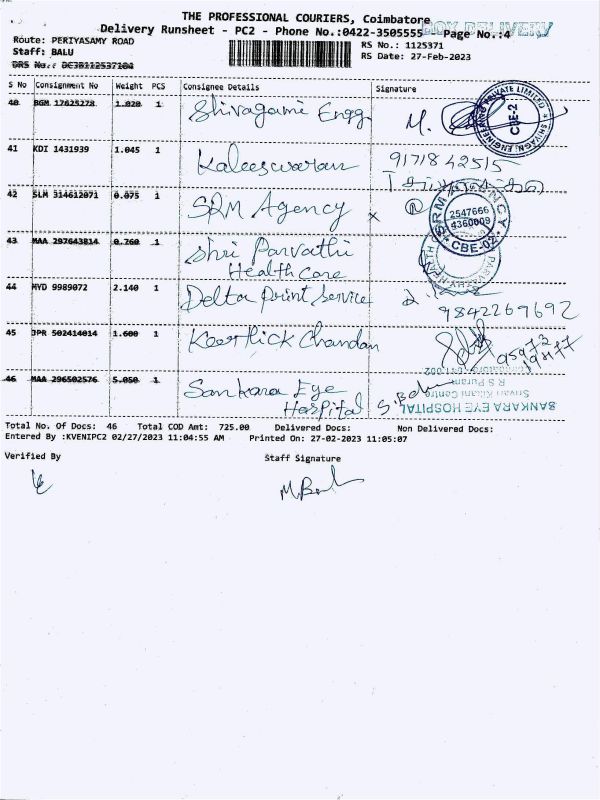 THE PROFESSIONAL COURIERS, Coimbatore
BOY DELIVERY
Delivery Runsheet - PC2 - Phone No.:0422-3505555 Page No.:4
Route: PERIYASAMY ROAD
RS No.: 1125371
Staff: BALU
RS Date: 27-Feb-2023
DRS No.: DE3B112537104
S No Consignment No Weight PCS Consignee Details Signature
40 BGM 17625278 1.020 1 Shivagami Engg M.
SHIVAGNI ENGINEERING PRIVATE LIMITED
CBE-2
41 KDI 1431939 1.045 1 Kaleeswaran 9171842515
42 SLM 314612071 0.075 1 SRM Agency x
SRM AGENCY
2547666
4360009
CBE-02
43 MAA 297643814 0.760 1 Shri Parvathi
Health Care
44 MYD 9989072 2.140 1 Delta Print Service
9842269692
45 JPR 502414014 1.600 1 Keerthick Chandan
46 MAA 296502576 5.050 1 Sankara Eye
Hospital
SANKARA EYE HOSPITAL
R S Puram
Total No. Of Docs: 46 Total COD Amt: 725.00 Delivered Docs: Non Delivered Docs:
Entered By :KVENIPC2 02/27/2023 11:04:55 AM Printed On: 27-02-2023 11:05:07
Verified By Staff Signature